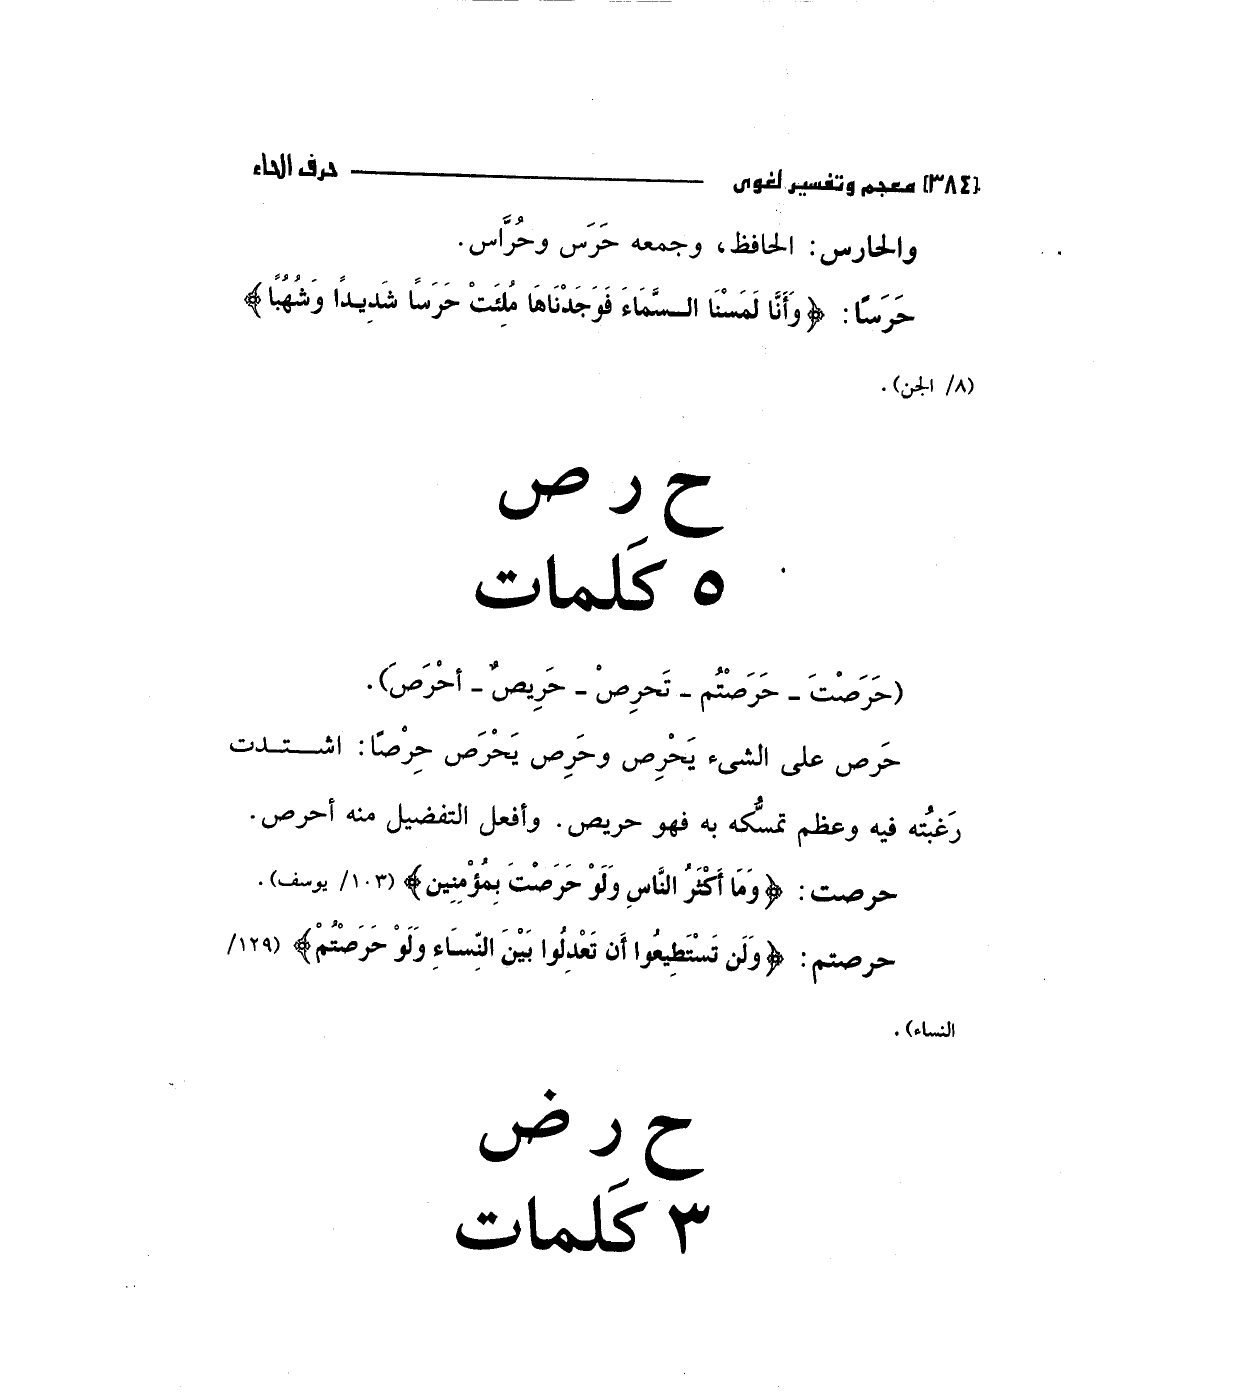 {٣٨٤} معجم وتفسير لغوى ــــــــ حرف الحاء
والحارس: الحافظ، وجمعه حَرَس وحُرَّاس.
حَرَسًا: ﴿وَأَنَّا لَمَسْنَا السَّمَاءَ فَوَجَدْنَاهَا مُلِئَتْ حَرَسًا شَدِيدًا وَشُهُبًا﴾
(٨/ الجن).
ح ر ص
٥ كَلمات
(حَرَصْتَ ـ حَرَصْتُم ـ تَحرِصْ ـ حَرِيصٌ ـ أحْرَصَ).
حَرص على الشىء يَحْرِص وحَرِص يَحْرَص حِرْصًا: اشتدت
رَغبُته فيه وعظم تمسُّكه به فهو حريص. وأفعل التفضيل منه أحرص.
حرصت: ﴿وَمَا أَكْثَرُ النَّاسِ وَلَوْ حَرَصْتَ بِمُؤْمِنِين﴾ (١٠٣/ يوسف).
حرصتم: ﴿وَلَن تَسْتَطِيعُوا أَن تَعْدِلُوا بَيْنَ النِّسَاءِ وَلَوْ حَرَصْتُمْ﴾ (١٢٩/
النساء).
ح ر ض
٣ كَلمات